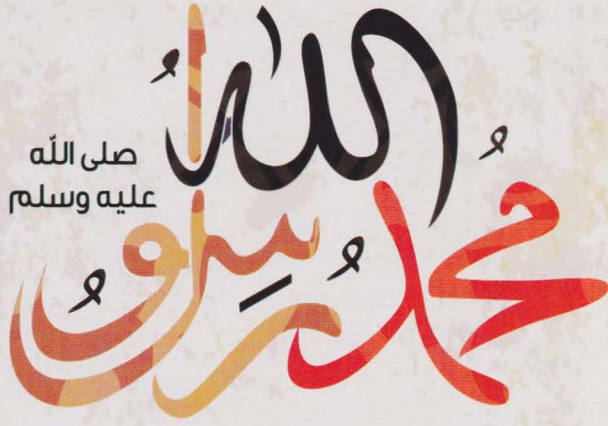 محمد رسول الله
صلى الله
عليه وسلم